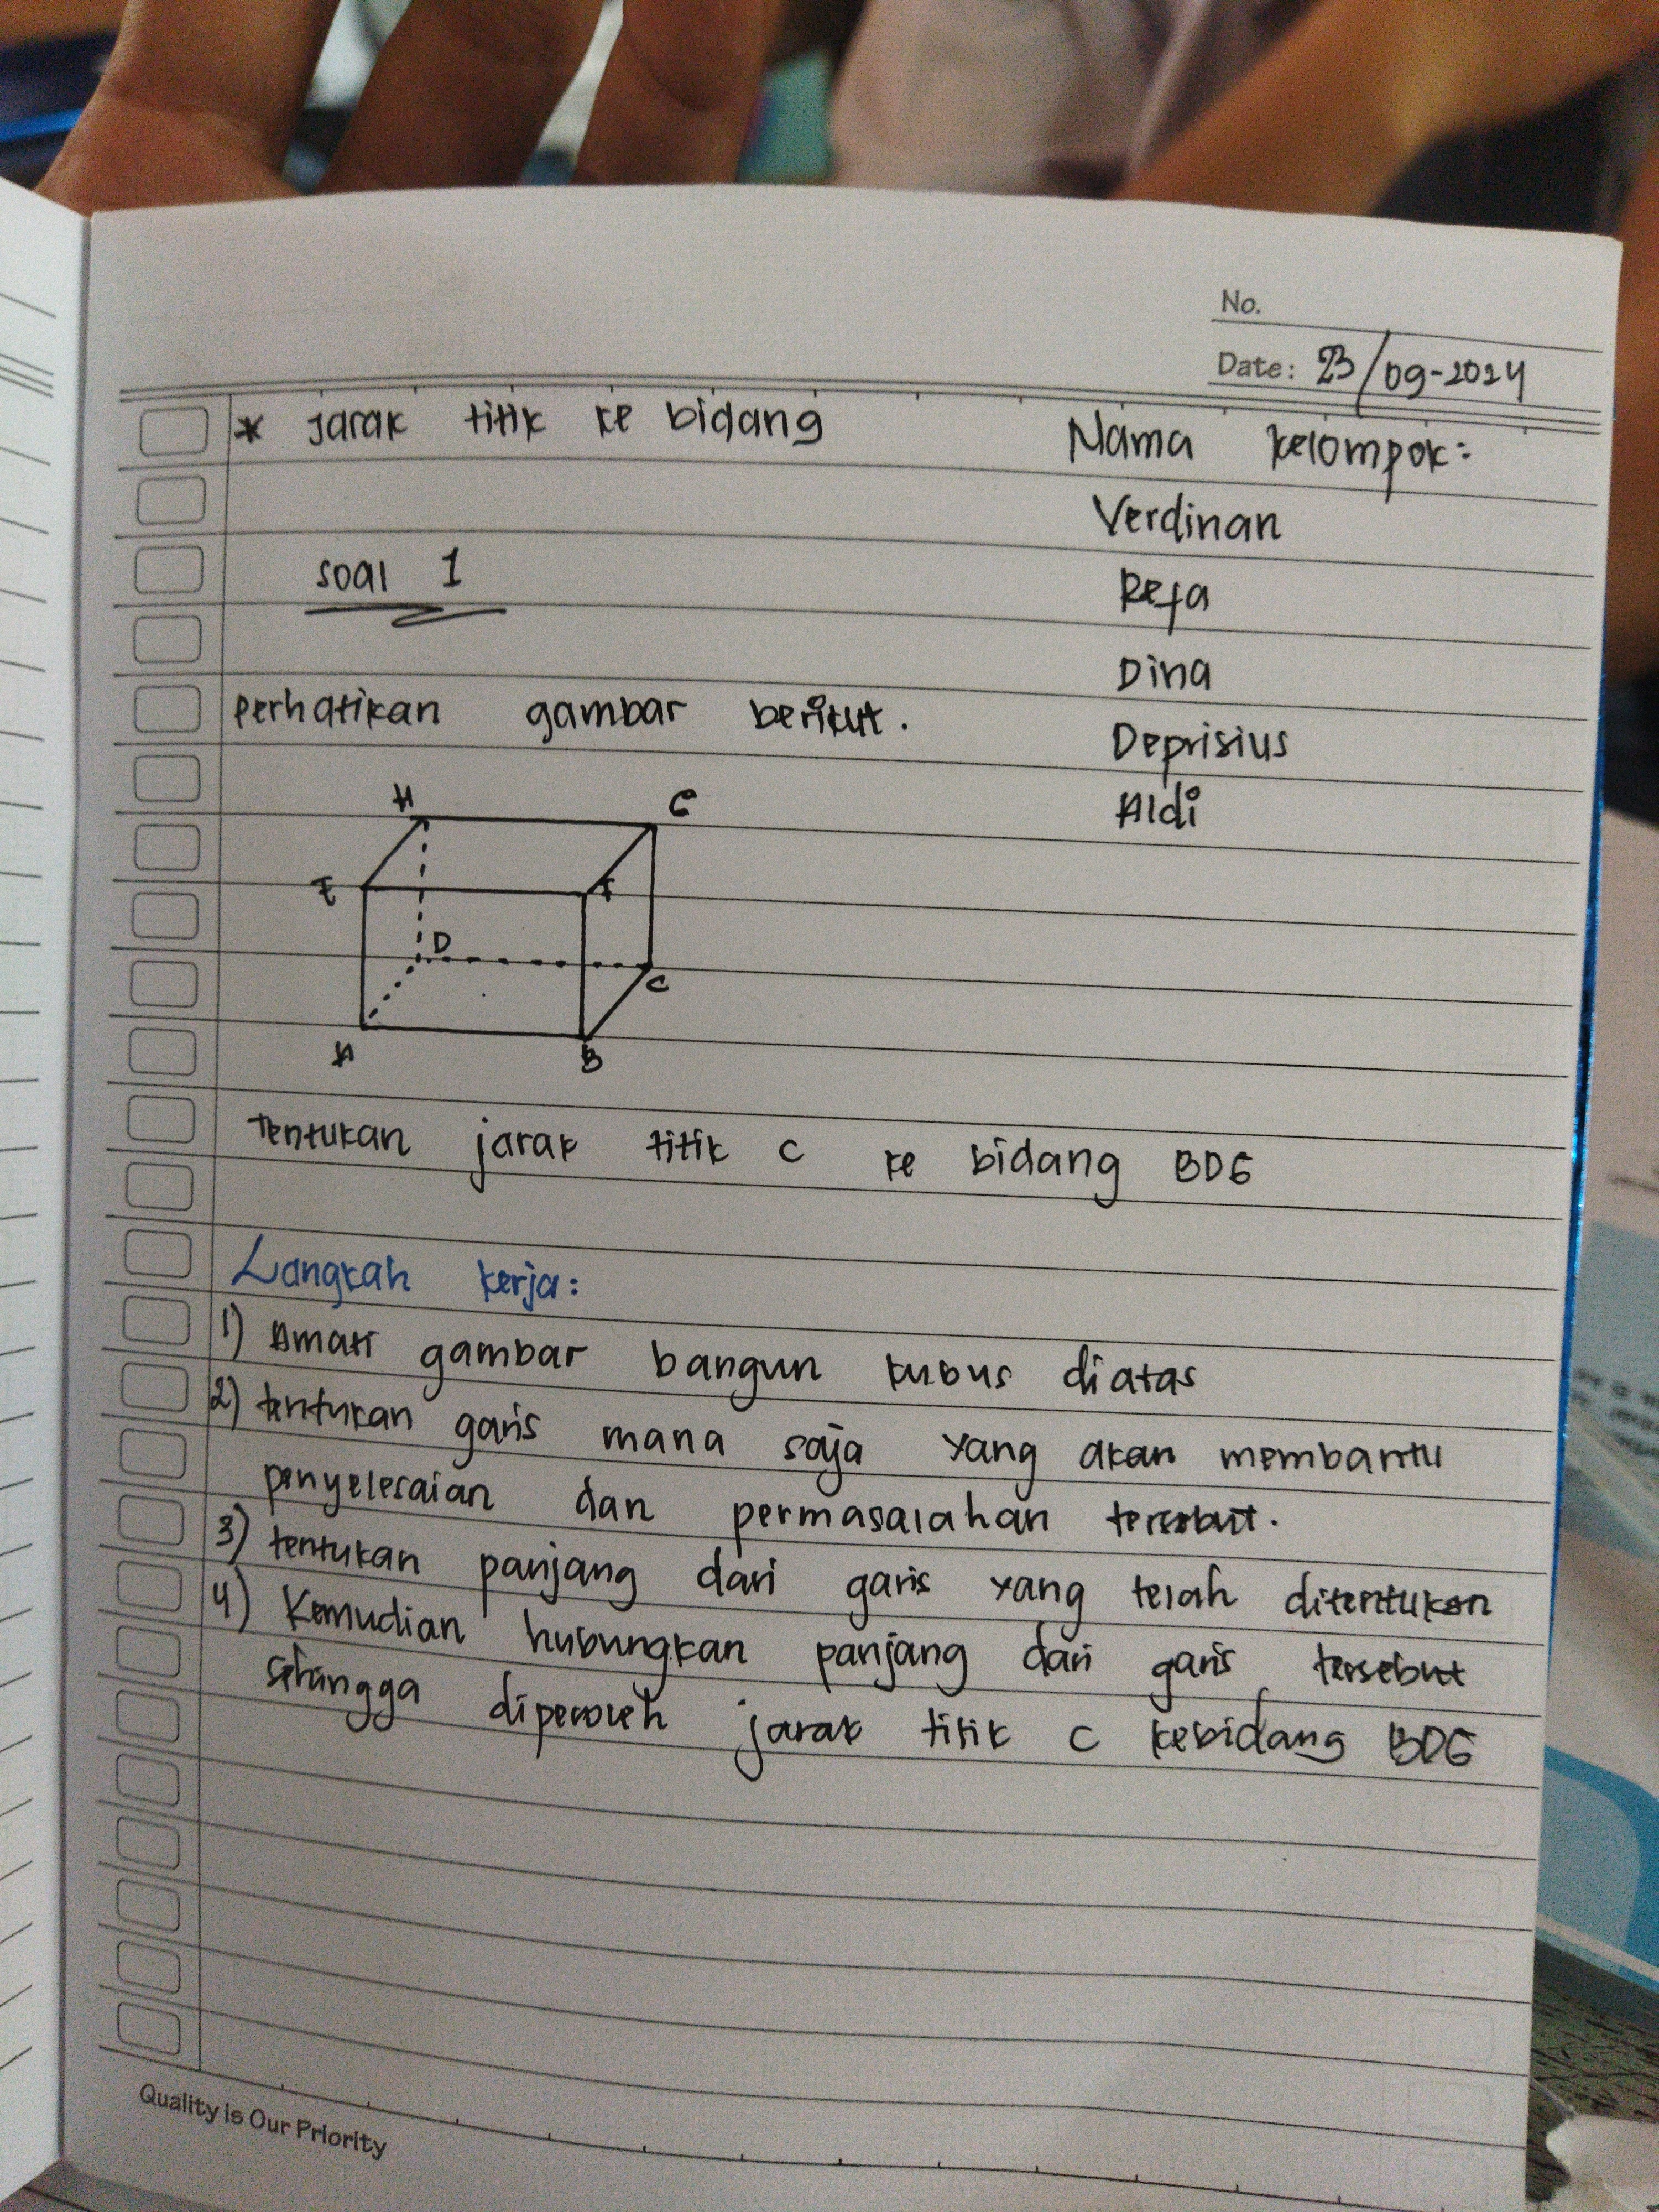 No.
Date: 23/09-2024
* Jarak titik ke bidang
Nama kelompok:
Verdinan
Refa
Dina
Deprisius
Aldi
soal 1
perhatikan gambar berikut.
H G
E F
D
C
A B
Tentukan jarak titik C ke bidang BDG
Langkah kerja:
1) Amati gambar bangun kubus diatas
2) tentukan garis mana saja yang akan membantu
penyelesaian dan permasalahan tersebut.
3) tentukan panjang dari garis yang telah ditentukan
4) Kemudian hubungkan panjang dari garis tersebut
sehingga diperoleh jarak titik C kebidang BDG
Quality is Our Priority